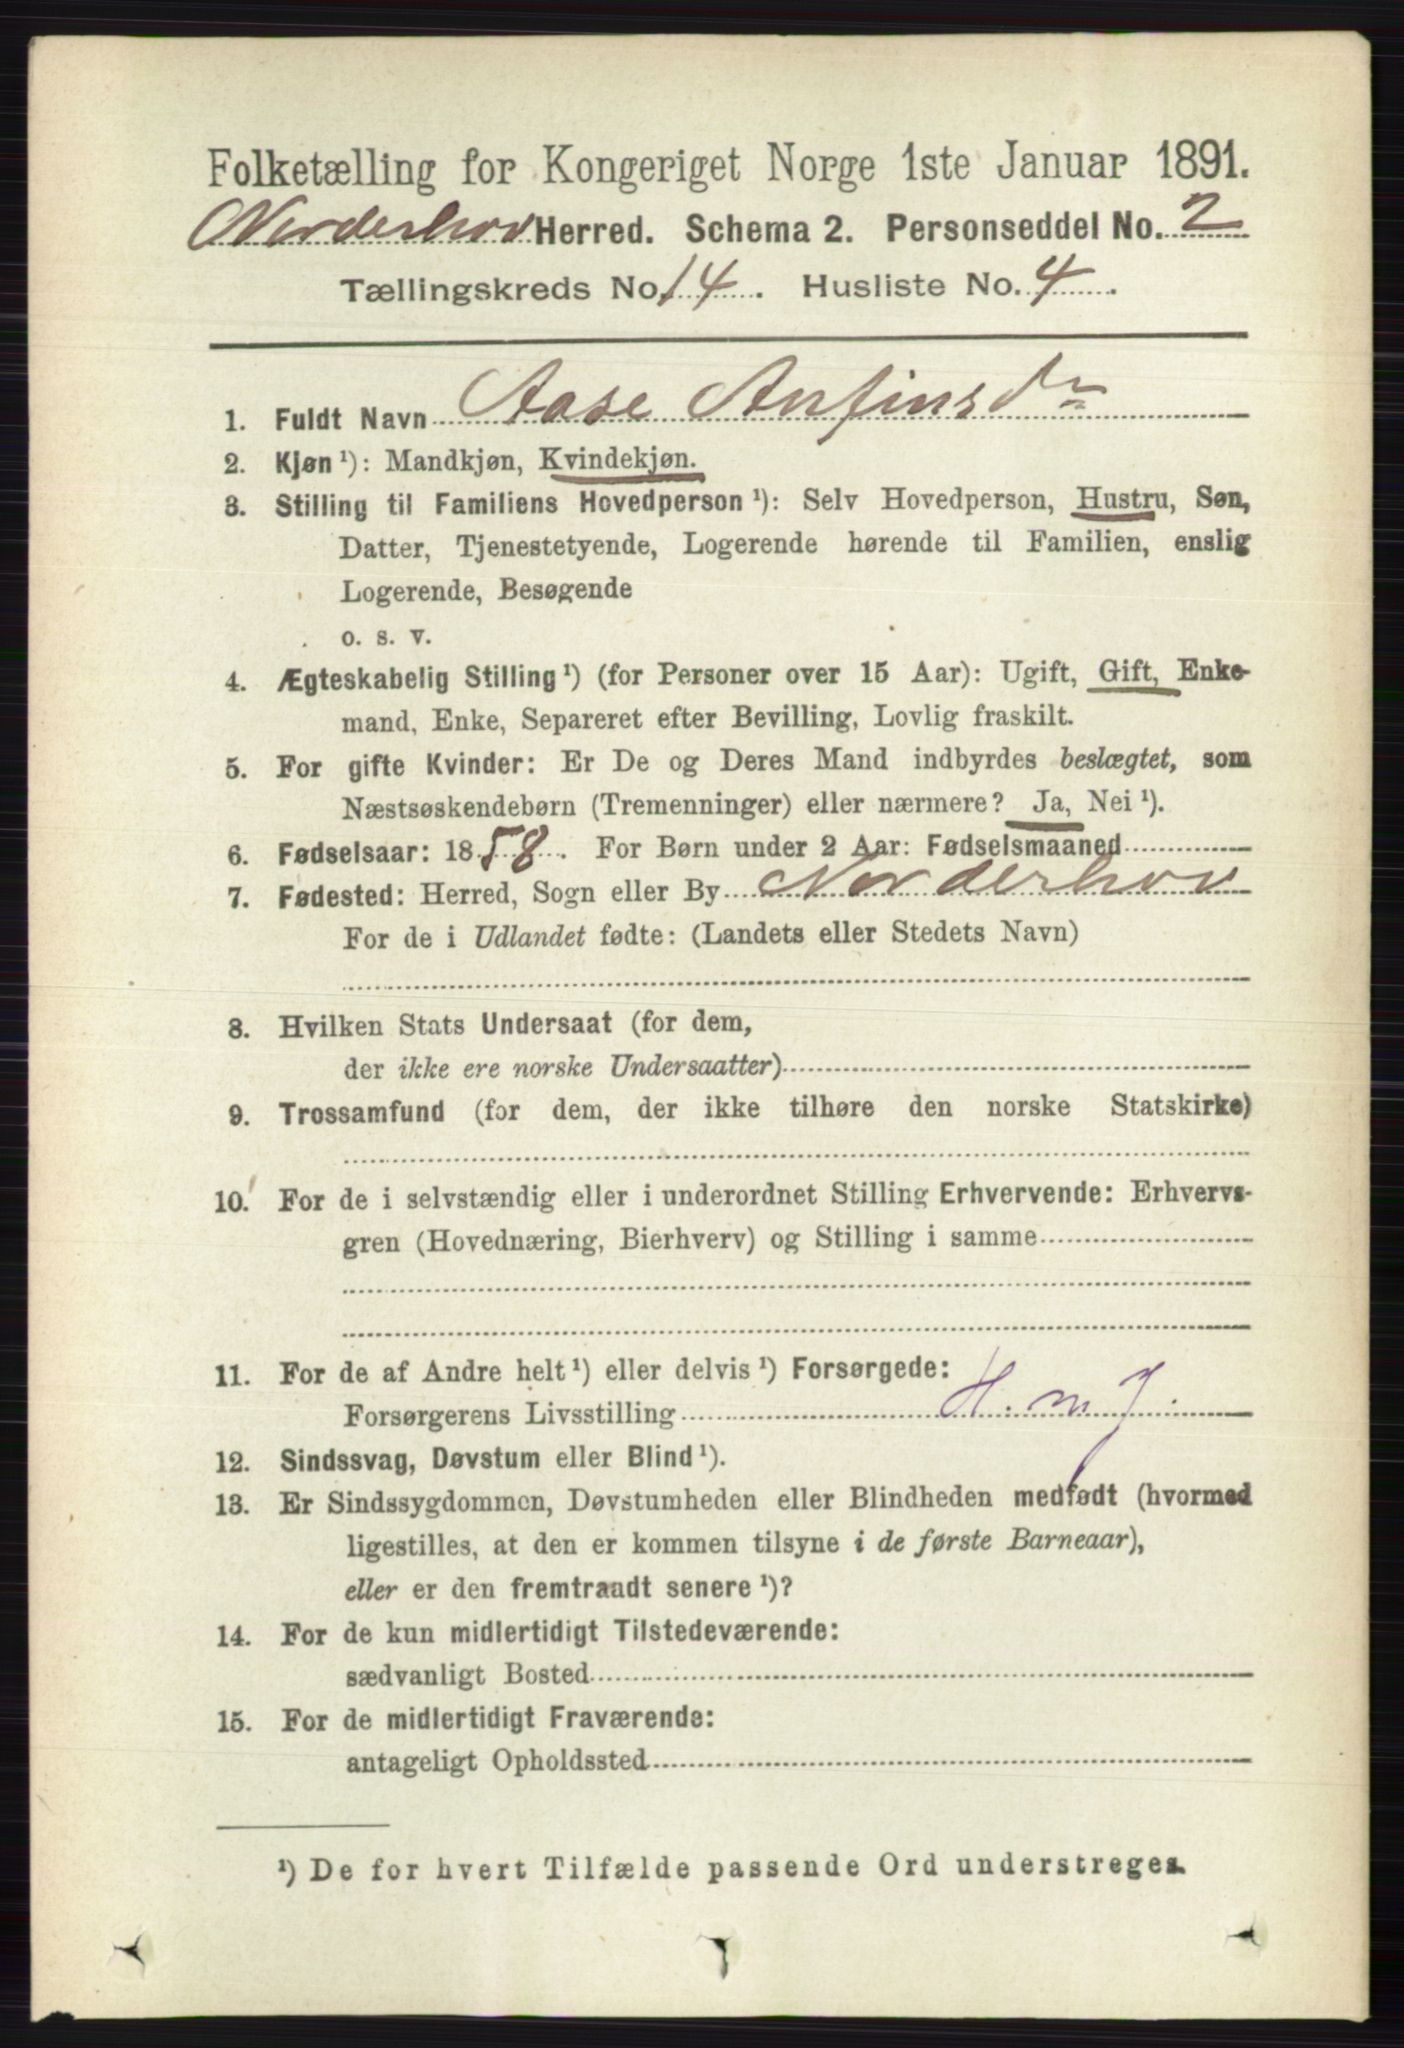 Folketælling for Kongeriget Norge 1ste Januar 1891.
Norderhov Herred. Schema 2. Personseddel No. 2
Tællingskreds No. 14. Husliste No. 4.
1. Fuldt Navn Aase Anfinsdr
2. Kjøn ¹): Mandkjøn, Kvindekjøn.
3. Stilling til Familiens Hovedperson ¹): Selv Hovedperson, Hustru, Søn,
Datter, Tjenestetyende, Logerende hørende til Familien, enslig
Logerende, Besøgende
o. s. v.
4. Ægteskabelig Stilling ¹) (for Personer over 15 Aar): Ugift, Gift, Enke-
mand, Enke, Separeret efter Bevilling, Lovlig fraskilt.
5. For gifte Kvinder: Er De og Deres Mand indbyrdes beslægtet, som
Næstsøskendebørn (Tremenninger) eller nærmere? Ja, Nei ¹).
6. Fødselsaar: 1858. For Børn under 2 Aar: Fødselsmaaned
7. Fødested: Herred, Sogn eller By Norderhov
For de i Udlandet fødte: (Landets eller Stedets Navn)
8. Hvilken Stats Undersaat (for dem,
der ikke ere norske Undersaatter)
9. Trossamfund (for dem, der ikke tilhøre den norske Statskirke)
10. For de i selvstændig eller i underordnet Stilling Erhvervende: Erhvervs-
gren (Hovednæring, Bierhverv) og Stilling i samme
11. For de af Andre helt ¹) eller delvis ¹) Forsørgede:
Forsørgerens Livsstilling H. m J.
12. Sindssvag, Døvstum eller Blind ¹).
13. Er Sindssygdommen, Døvstumheden eller Blindheden medfødt (hvormed
ligestilles, at den er kommen tilsyne i de første Barneaar),
eller er den fremtraadt senere ¹)?
14. For de kun midlertidigt Tilstedeværende:
sædvanligt Bosted
15. For de midlertidigt Fraværende:
antageligt Opholdssted
¹) De for hvert Tilfælde passende Ord understreges.